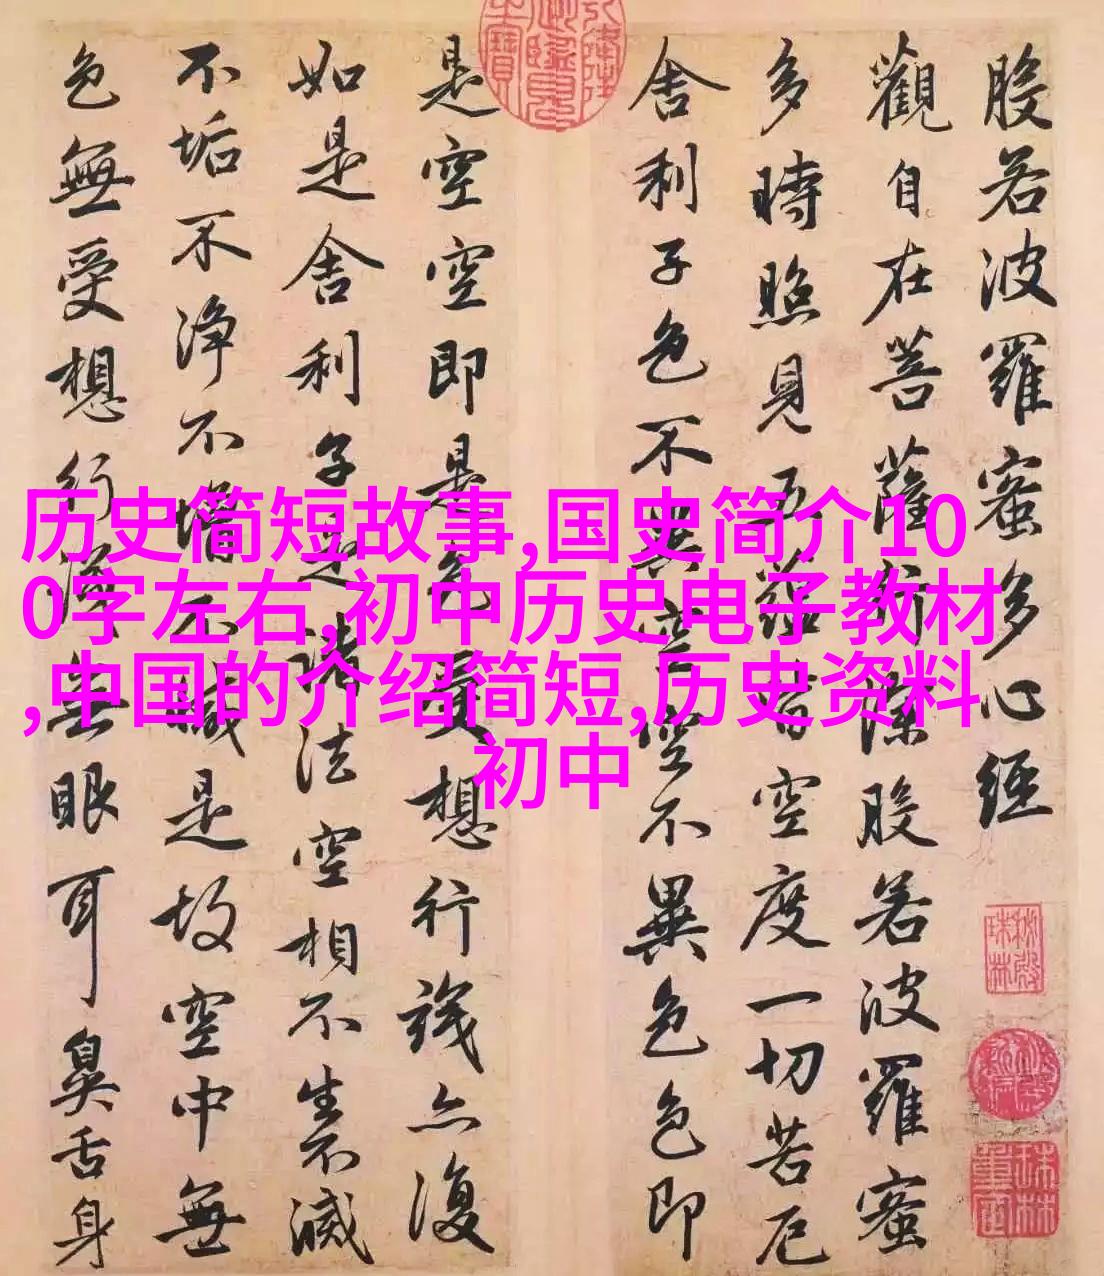 历史简短故事,国史简介10
0字左右,初中历史电子教材
,中国的介绍简短,历史资料
初中
般若波羅蜜多心經
觀自在菩薩行深般若波羅蜜
多時照見五蘊皆空度一切苦厄
舍利子色不異空空不異色色即
是空空即是色受想行識亦復
如是舍利子是諸法空相不生不滅
不垢不淨不增不減是故空中無
色無受想行識無眼耳鼻舌身